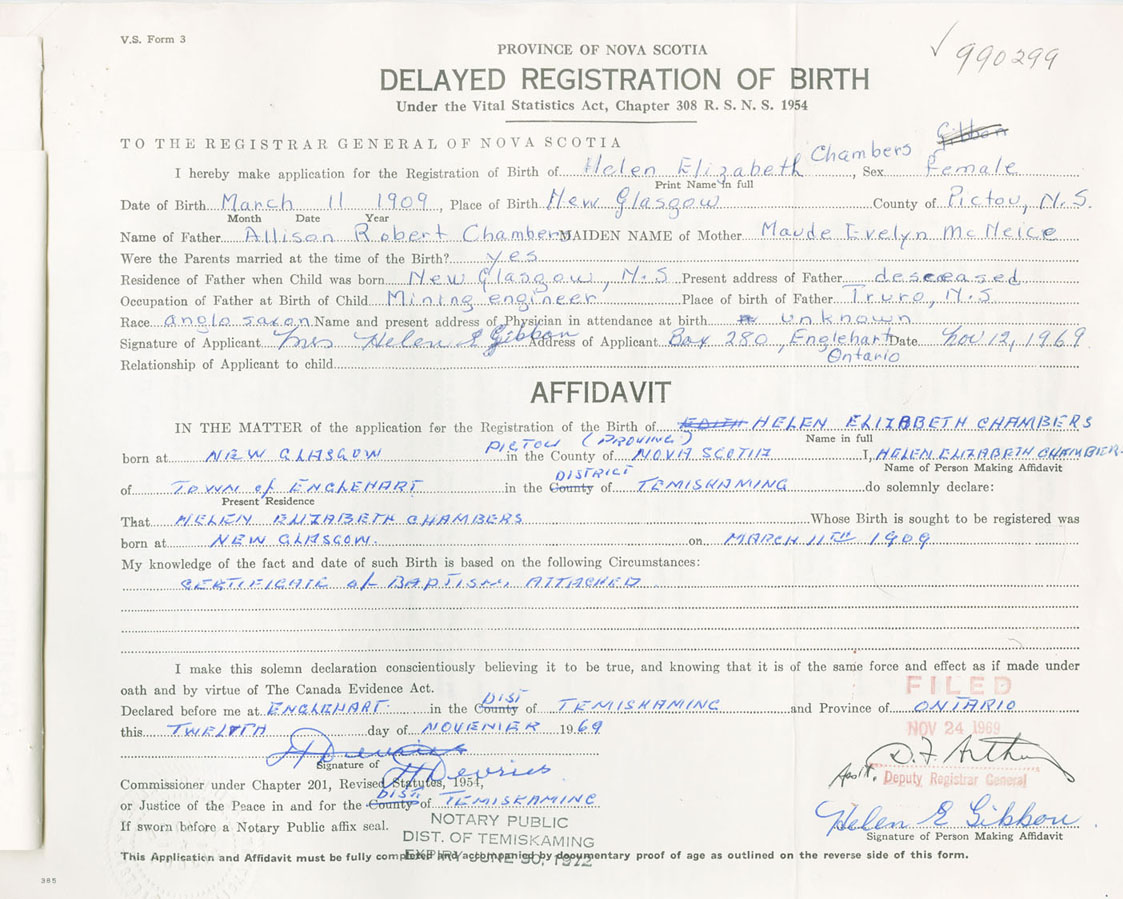 V.S. Form 3
990299
PROVINCE OF NOVA SCOTIA
DELAYED REGISTRATION OF BIRTH
Under the Vital Statistics Act, Chapter 308 R. S. N. S. 1954
TO THE REGISTRAR GENERAL OF NOVA SCOTIA Gibbon
I hereby make application for the Registration of Birth of Helen Elizabeth Chambers, Sex Female
Print Name in full
Date of Birth March 11 1909, Place of Birth New Glasgow County of Pictou, N.S.
Month Date Year
Name of Father Allison Robert Chambers MAIDEN NAME of Mother Maude Evelyn McNeice
Were the Parents married at the time of the Birth? yes
Residence of Father when Child was born New Glasgow, N.S Present address of Father desceased
Occupation of Father at Birth of Child Mining engineer Place of birth of Father Truro, N.S
Race anglo saxon Name and present address of Physician in attendance at birth unknown
Signature of Applicant Mrs Helen E Gibbon Address of Applicant Box 280, Englehart Date Nov 12, 1969
Ontario
Relationship of Applicant to child
AFFIDAVIT
IN THE MATTER of the application for the Registration of the Birth of EDITH HELEN ELIZABETH CHAMBERS
Name in full
PICTOU (PROVINCE)
born at NEW GLASGOW in the County of NOVA SCOTIA I, HELEN ELIZABETH CHAMBERS
Name of Person Making Affidavit
DISTRICT
of TOWN of ENGLEHART in the County of TEMISKAMING do solemnly declare:
Present Residence
That HELEN ELIZABETH CHAMBERS Whose Birth is sought to be registered was
born at NEW GLASGOW. on MARCH 11TH 1909
My knowledge of the fact and date of such Birth is based on the following Circumstances:
CERTIFICATE of BAPTISM ATTACHED
I make this solemn declaration conscientiously believing it to be true, and knowing that it is of the same force and effect as if made under
oath and by virtue of The Canada Evidence Act.
FILED
DIST
Declared before me at ENGLEHART in the County of TEMISKAMING and Province of ONTARIO
this TWELVTH day of NOVEMBER 1969
NOV 24 1969
H Devries
Signature of
H Devries
Asst. Deputy Registrar General
Commissioner under Chapter 201, Revised Statutes, 1954,
DIST.
or Justice of the Peace in and for the County of TEMISKAMING
Helen E Gibbon
Signature of Person Making Affidavit
If sworn before a Notary Public affix seal.
NOTARY PUBLIC
DIST. OF TEMISKAMING
EXPIRY JUNE 30, 1972
This Application and Affidavit must be fully completed and accompanied by documentary proof of age as outlined on the reverse side of this form.
385